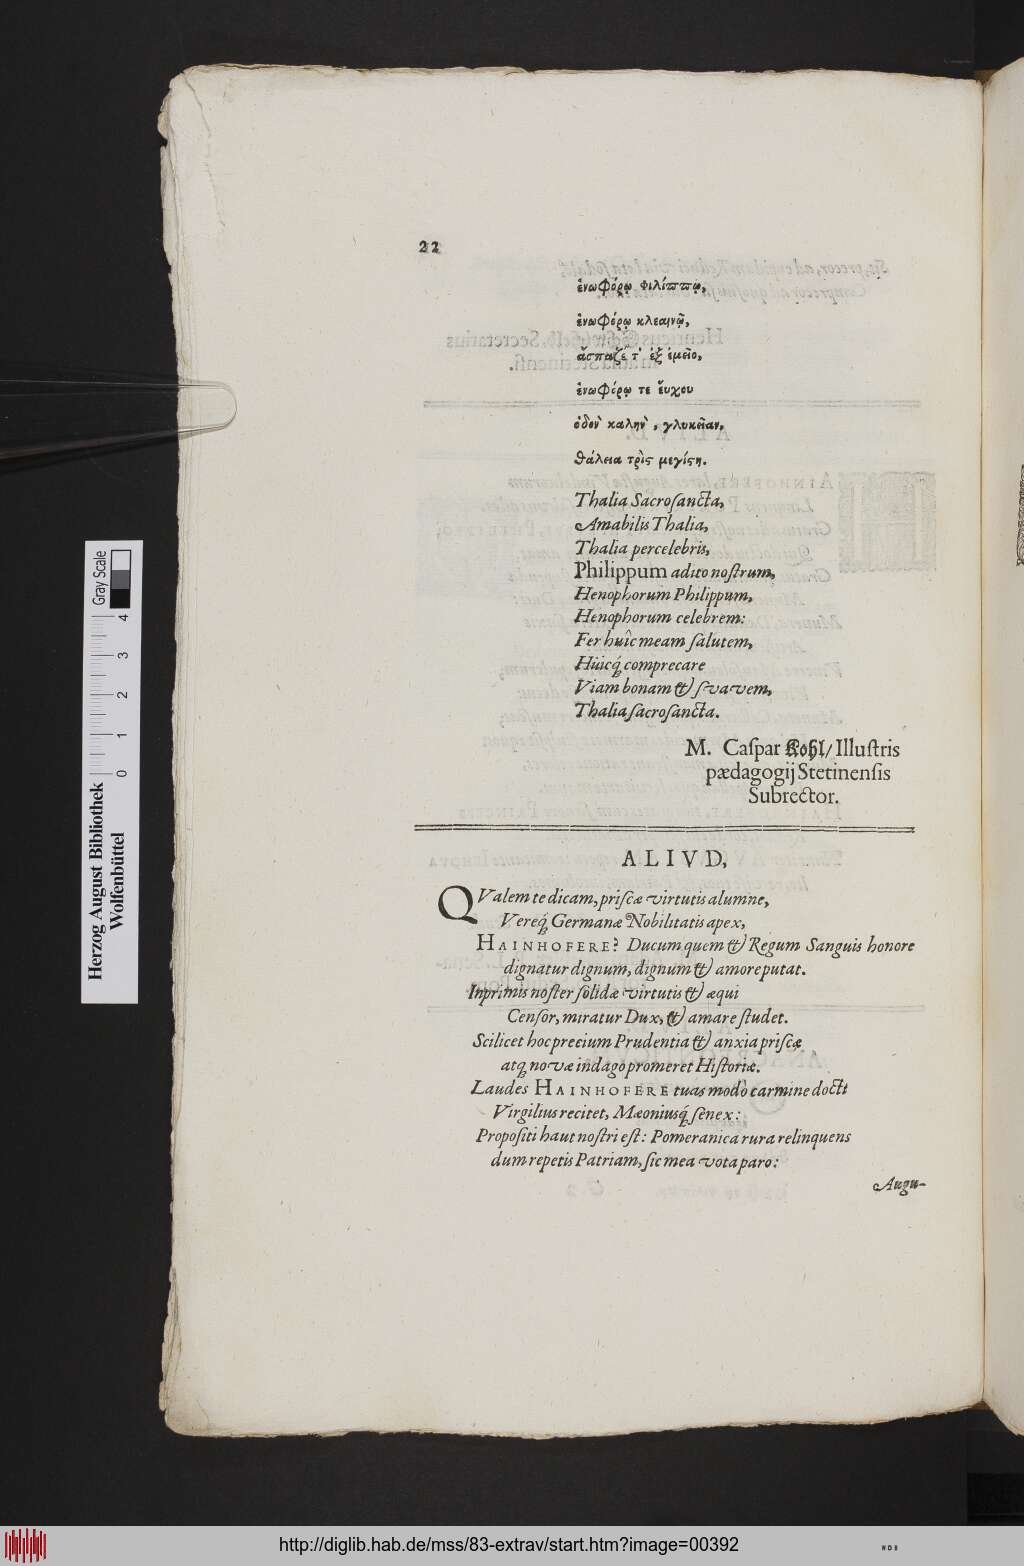 22
ἑνωφόρῳ Φιλίππῳ,
ἑνωφόρῳ κλεαινῷ,
ἄσπαζέ τ' ἐξ ἐμεῖο,
ἑνωφόρῳ τε ἔυχου
ὁδον καλην, γλυκεῖαν,
θάλεια τρὶς μεγίϛη.
Thalia Sacroſancta,
Amabilis Thalia,
Thalia percelebris,
Philippum adito noſtrum,
Henophorum Philippum,
Henophorum celebrem:
Fer huîc meam ſalutem,
Huicq́ comprecare
Viam bonam & ſvavem,
Thalia ſacroſancta.
M. Caſpar Kohl/ Illuſtris
pædagogij Stetinenſis
Subrector.
ALIVD,
QValem te dicam, priſcæ virtutis alumne,
Vereq́ Germanæ Nobilitatis apex,
HAINHOFERE? Ducum quem & Regum Sanguis honore
dignatur dignum, dignum & amore putat.
Inprimis noſter ſolidæ virtutis & æqui
Cenſor, miratur Dux, & amare ſtudet.
Scilicet hoc precium Prudentia & anxia priſcæ
atq́ novæ indago promeret Hiſtoriæ.
Laudes HAINHOFERE tuas modò carmine docti
Virgilius recitet, Mæoniusq́ ſenex:
Propoſiti haut noſtri eſt: Pomeranica rura relinquens
dum repetis Patriam, ſic mea vota paro:
Augu-
Herzog August Bibliothek
Wolfenbüttel
Gray Scale
0 1 2 3 4
http://diglib.hab.de/mss/83-extrav/start.htm?image=00392